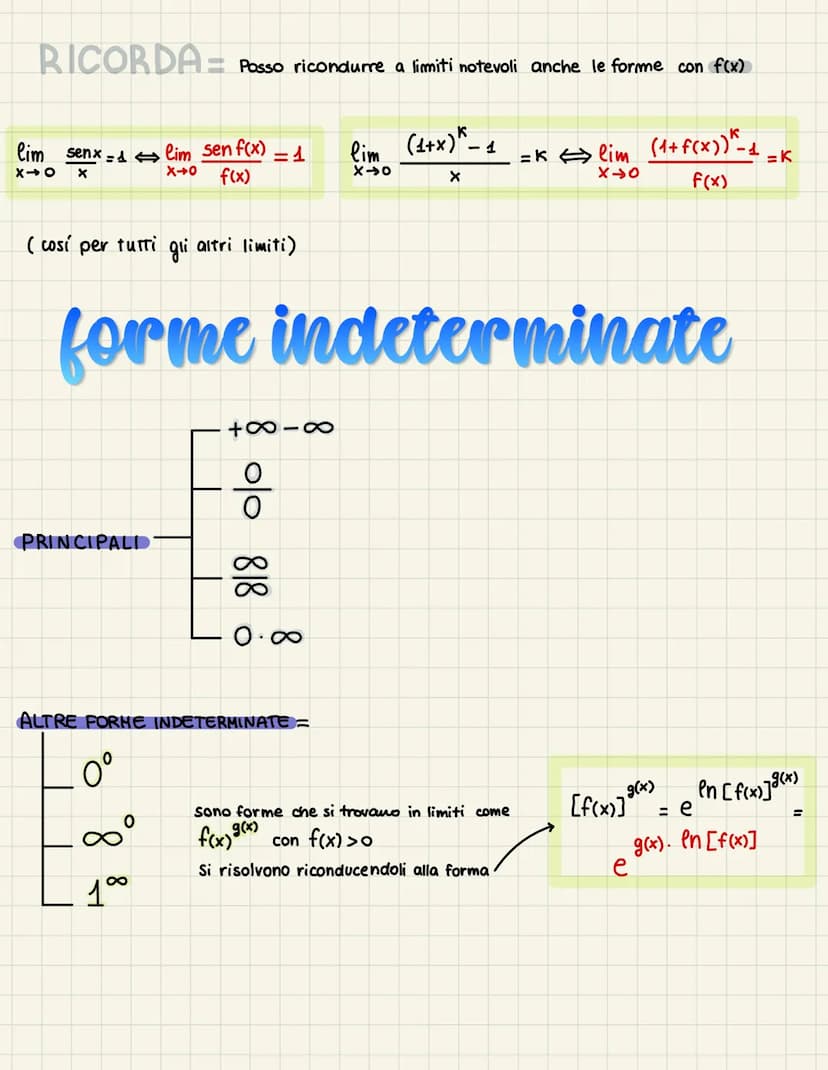 RICORDA = Posso ricondurre a limiti notevoli anche le forme con f(x)
lim x→0 senx/x = 1 ⇔ lim x→0 sen f(x)/f(x) = 1
lim x→0 (1+x)^K - 1/x = K ⇔ lim x→0 (1+f(x))^K - 1/f(x) = K
(cosí per tutti gli altri limiti)
forme indeterminate
PRINCIPALI
+∞ - ∞
0/0
∞/∞
0 · ∞
ALTRE FORME INDETERMINATE =
0^0
∞^0
1^∞
sono forme che si trovano in limiti come
f(x)^g(x) con f(x) > 0
Si risolvono riconducendoli alla forma
[f(x)]^g(x) = e^ln[f(x)]^g(x) =
e^g(x) · ln[f(x)]